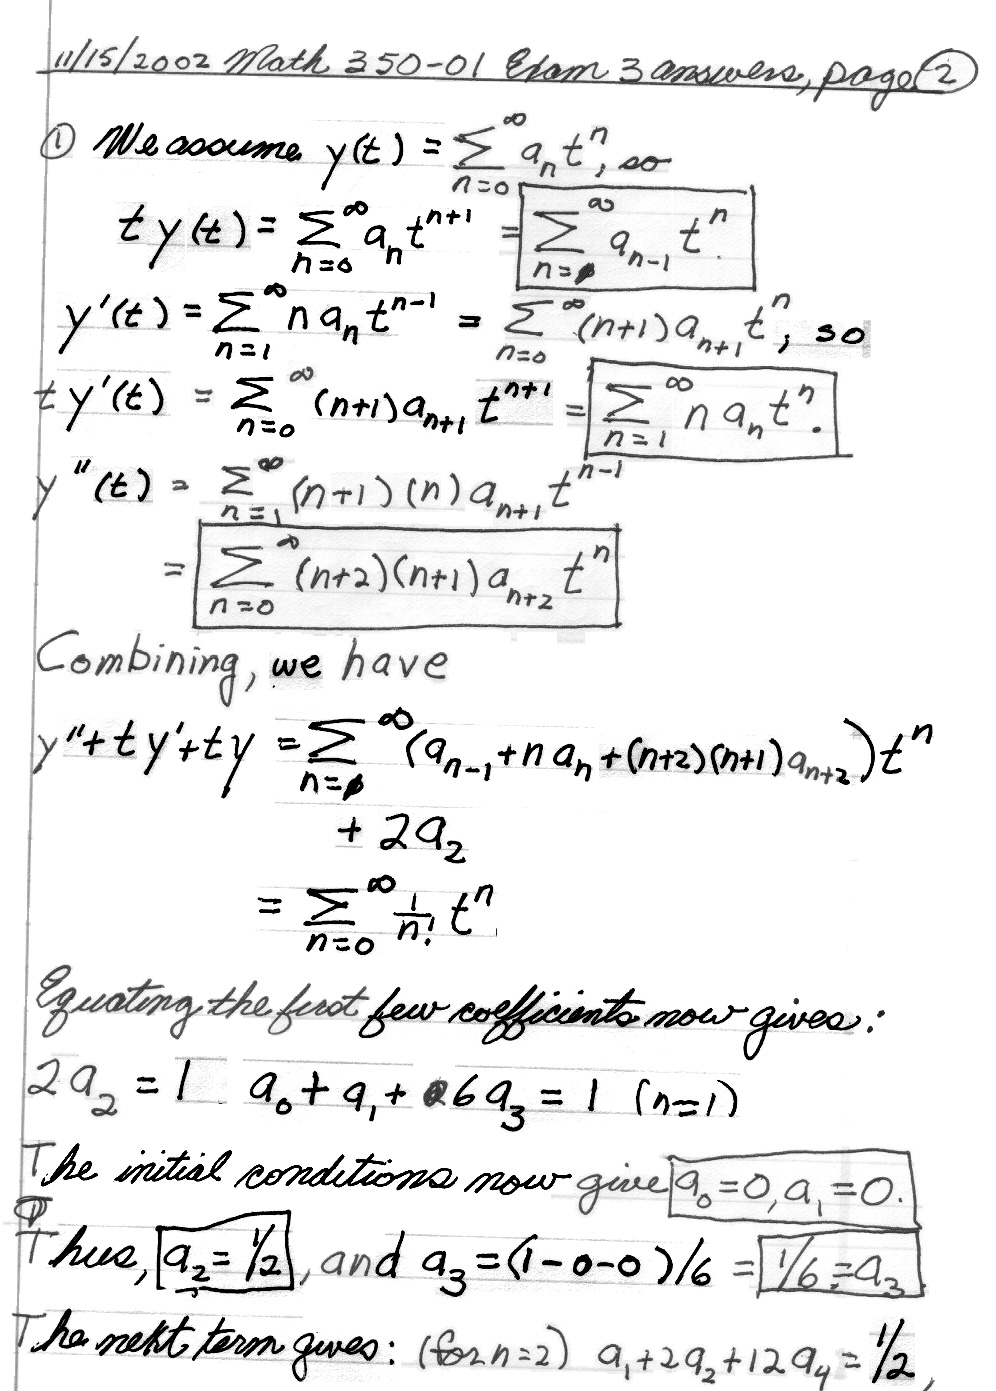 11/15/2002 Math 350-01 Exam 3 answers, page 2
① We assume y(t) = ∑_{n=0}^{∞} a_n t^n, so
t y(t) = ∑_{n=0}^{∞} a_n t^{n+1} = ∑_{n=1}^{∞} a_{n-1} t^n.
y'(t) = ∑_{n=1}^{∞} n a_n t^{n-1} = ∑_{n=0}^{∞} (n+1) a_{n+1} t^n, so
t y'(t) = ∑_{n=0}^{∞} (n+1) a_{n+1} t^{n+1} = ∑_{n=1}^{∞} n a_n t^n.
y''(t) = ∑_{n=1}^{∞} (n+1)(n) a_{n+1} t^{n-1}
= ∑_{n=0}^{∞} (n+2)(n+1) a_{n+2} t^n
Combining, we have
y''+ty'+ty = ∑_{n=1}^{∞} (a_{n-1} + n a_n + (n+2)(n+1) a_{n+2}) t^n
+ 2a_2
= ∑_{n=0}^{∞} 1/n! t^n.
Equating the first few coefficients now gives:
2a_2 = 1 a_0 + a_1 + 6a_3 = 1 (n=1)
The initial conditions now give a_0=0, a_1=0.
Thus, a_2 = 1/2, and a_3 = (1-0-0)/6 = 1/6 = a_3.
The next term gives: (for n=2) a_1+2a_2+12a_4 = 1/2,